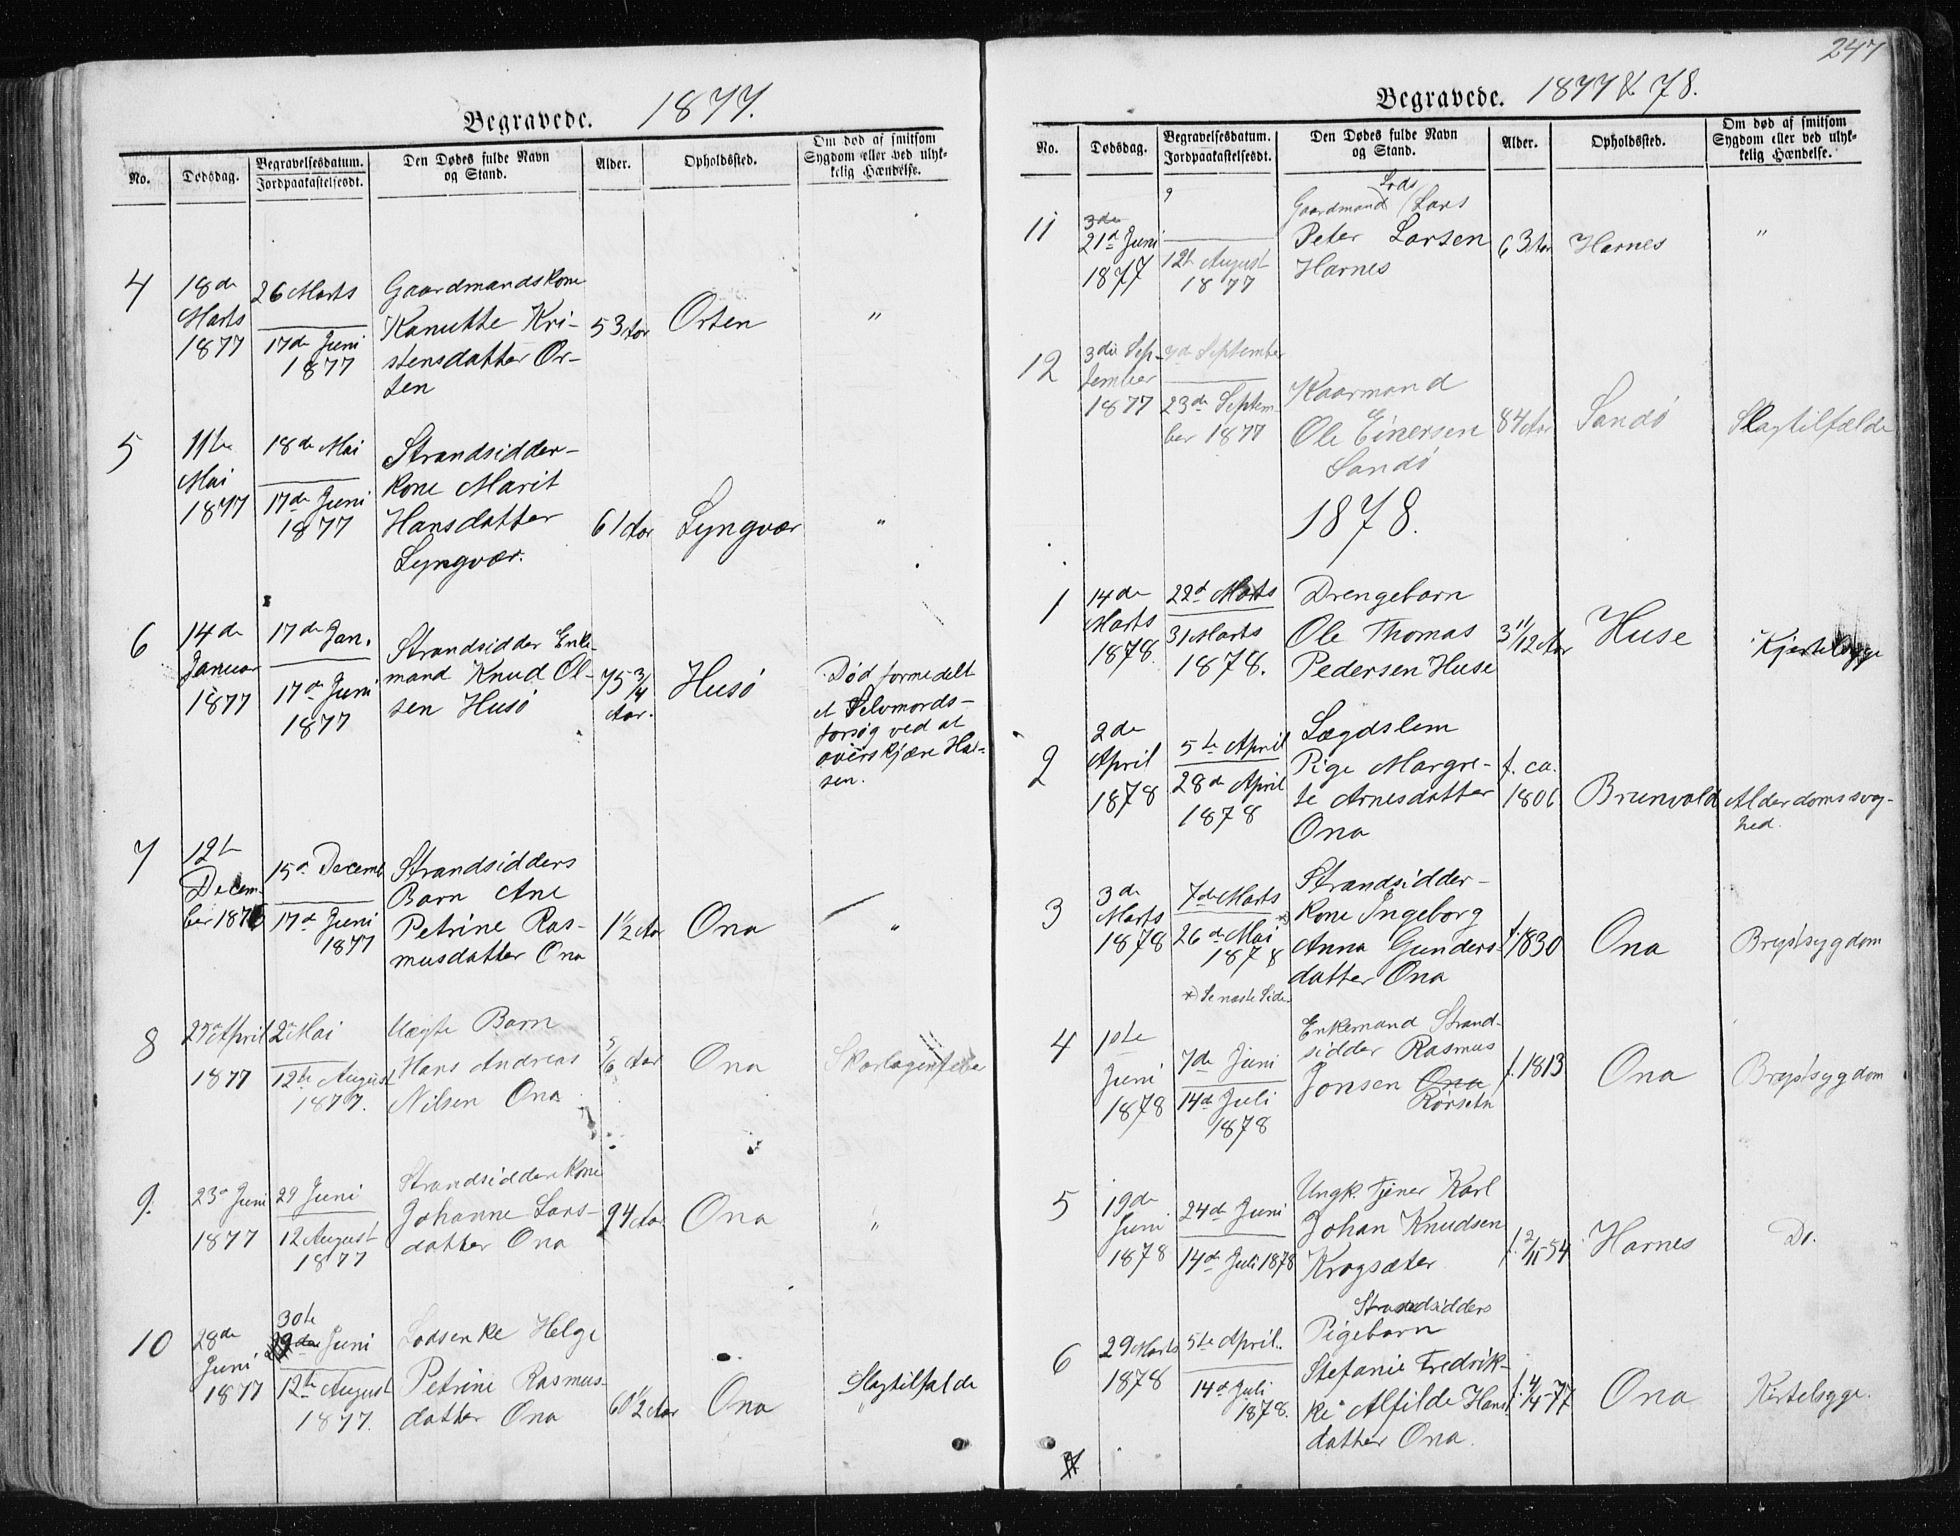 Begravede. 1877.
No.
Dødsdag.
Begravelsesdatum.
Jordpaakastelsesdt.
Den Dødes fulde Navn
og Stand.
Alder.
Opholdssted.
Om død af smitsom
Sygdom eller ved ulyk-
kelig Hændelse.
4
18de
Marts
1877
26 Marts
17de Juni
1877
Gaardmandskone
Kanutte Kri-
stensdatter Or-
ten
53 Aar
Orten
"
5
11te
Mai
1877
18de Mai
17de Juni
1877
Strandsidder-
kone Marit
Hansdatter
Lyngvær.
61 Aar
Lyngvær
"
6
14de
Januar
1877
17de Jan.
17de Juni
1877
Strandsidder Enke-
mand Knud Ol-
sen Husö
75 3/4
Aar.
Husö
Død formedelt
et Selvmords-
forsøg ved at
overskjære Hal-
sen.
7
12te
Decem-
ber 1876
15de Decemb
17de Juni
1877
Strandsidders
Barn Ane
Petrine Ras-
musdatter Ona
1½ Aar
Ona
"
8
April
1877
2de Mai
12te August
1877.
Uægte Barn
Hans Andreas
Nilsen Ona
5/6 Aar
Ona
Skarlagensfeber
9.
23de Juni
1877
29 Juni
12 August
1877
Strandsidderkone
Johanne Lars-
datter Ona
Aar
Ona
"
10
28de
Juni
1877
30te
29de Juni
12te August
1877.
Lodsenke Helge
Petrine Rasmus-
datter Ona
60½ Aar
Ona
Slagtilfælde
"
247
Begravede. 1877 & 78.
No.
Dødsdag.
Begravelsesdatum.
Jordpaakastelsesdt.
Den Dødes fulde Navn
og Stand.
Alder.
Opholdssted.
Om død af smitsom
Sygdom eller ved ulyk-
kelig Hændelse.
11
3die
21de Juni
1877
?
12te August
1877
Lods
Gaardmand / Lars
Peter Larsen
Harnes
63 Aar
Harnes
"
12
3die Sep-
tember
1877
September
23de Septem-
ber 1877
Kaarmand
Ole Einersen
Sandö
84 Aar
Sandö
Slagtilfælde
1878.
1
14de
Marts
1878.
22de Marts
31 Marts
1878.
Drengebarn
Ole Thomas
Pedersen Huse
3 11/12 Aar
Huse
Kjertelsyge
2
2de
April
1878
5te April
28de April
1878
Lægdslem
Pige Margre-
te Arnesdatter
Ona
f. ca.
1806
Brunvold
Alderdomssvag-
hed.
3
3de
Marts
1878
7de Marts
*)
26de Mai
1878
*) Se næste Side
Strandsidder-
kone Ingeborg
Anna Gunders-
datter Ona
f. 1830
Ona
Brystsygdom
4
1ste
Juni
1878
7de Juni
14de Juli
1878
Enkemand Strand-
sidder Rasmus
Jonsen Ona
Rörsetr
f. 1813
Ona
Brystsygdom
5
19de
Juni
1878
24de Juni
14de Juli 1878
Ungk. Tjener Karl
Johan Knudsen
Krogsæter
f. 2/11-54
Harnes
Do.
6
29 Marts
1878
5te April.
14de Juli
1878.
Strandsidders
Pigebarn
Stefanie Fredrik-
ke Alfilde Hans-
datter Ona.
f. 4/4-77
Ona
Kirtelsyge.
7